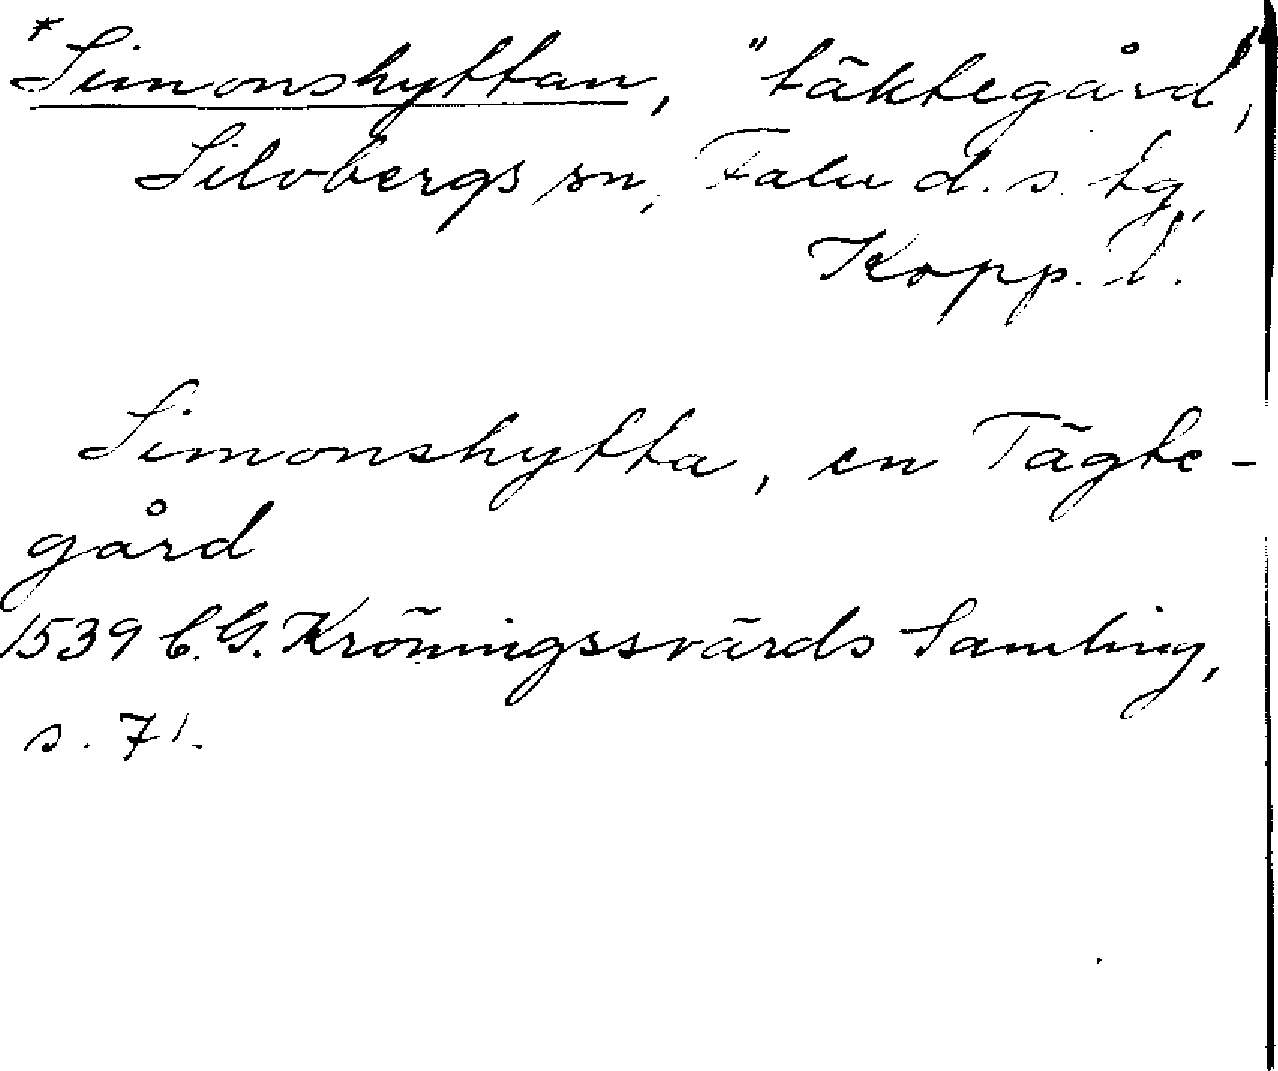 *Simonshyttan, "täktegård",
Silvbergs sn, Falu d. s. tg,
Kopp. l.
Simonshytta, en Tägte-
gård
1539 C. G. Kröningssvärds Samling,
s. 71.